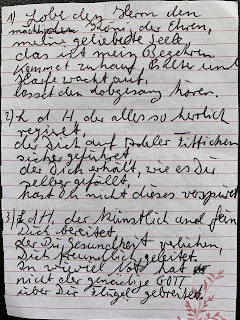 1) Lobe den Herrn den
mächtigen König der Ehren,
meine geliebte Seele,
das ist mein Begehren
kommet zuhauf, Psalter und
Harfe wacht auf,
lasset den Lobgesang hören.
2) L d H, der alles so herrlich
regieret,
der Dich auf Adeler Fittichen
sicher geführet,
der Dich erhält, wie es Dir
selber gefällt,
hast Du nicht dieses verspüret
3) L d H, der künstlich und fein
Dich bereitet,
der Dir Gesundheit verliehen,
Dich freundlich geleitet.
In wieviel Not hat
nicht der gnädige GOTT
über Dir Flügel gebreitet.